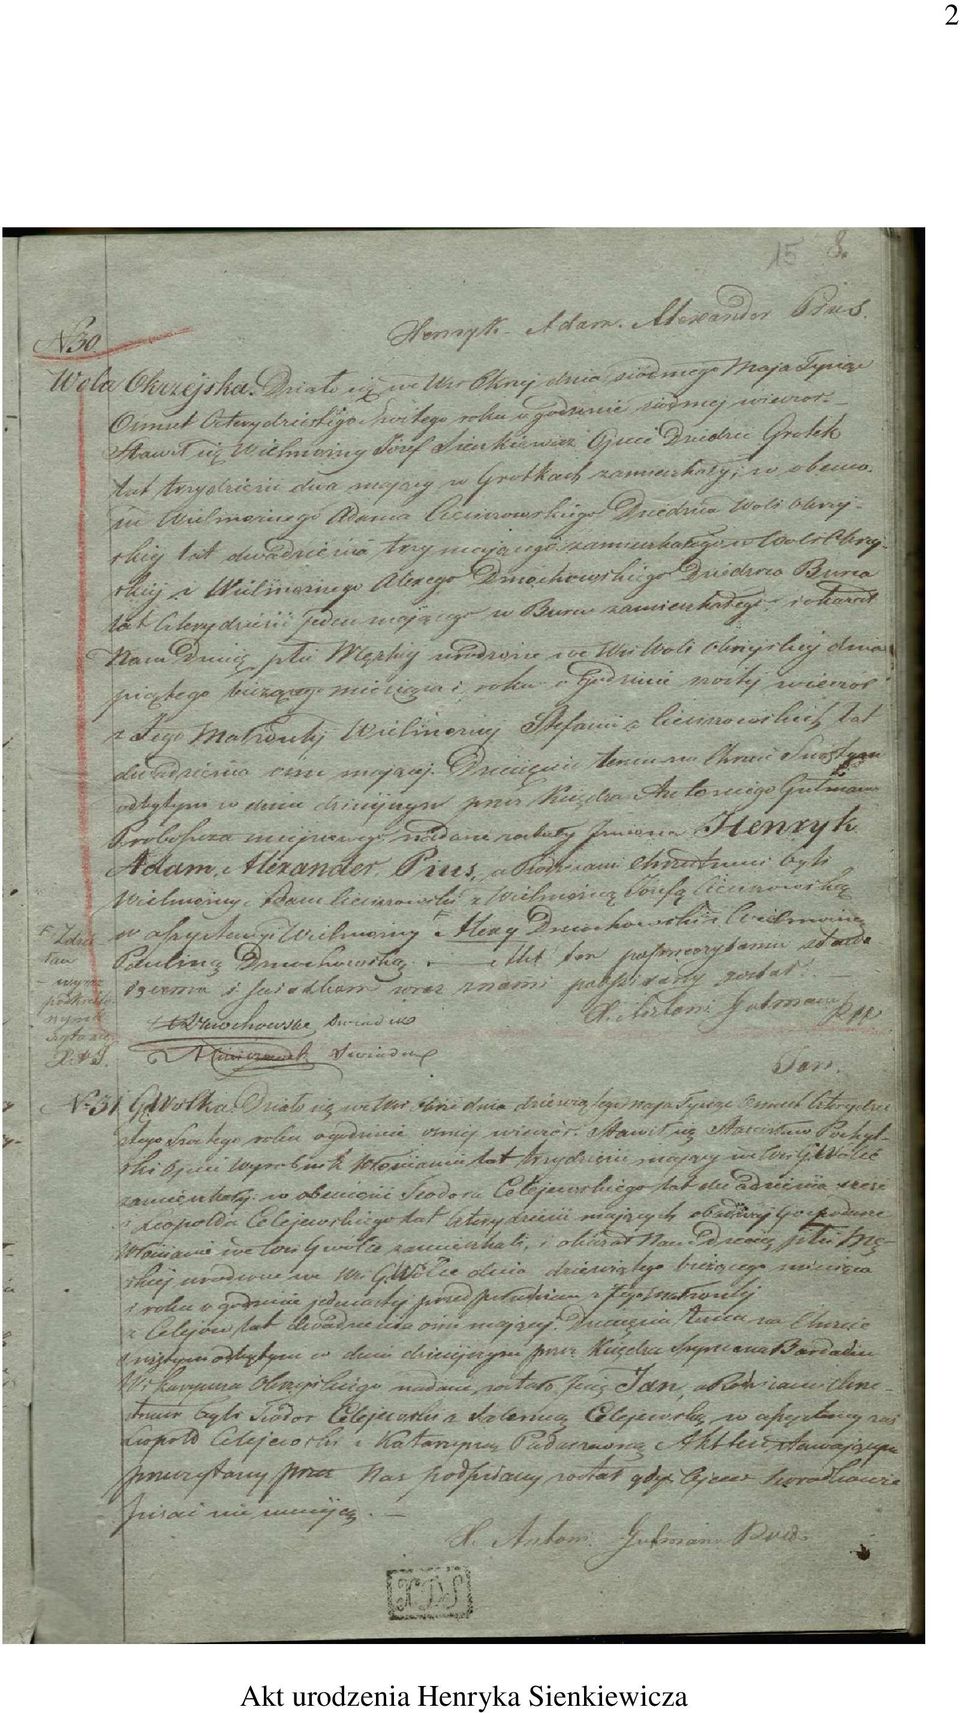 2
15 8.
Henryk - Adam. Alexander Pius.
N 30.
Wola Okrzejska. Działo się we Wsi Okrzej dnia siódmego Maja Tysiąc
Ośmset Czterydziestego Szóstego roku o godzinie siódmej wieczor.
Stawił się Wielmożny Józef Sienkiewicz Ojciec Dziedzic Grotek
lat trzydzieści dwa mający w Grotkach zamieszkały, w obecno-
ści Wielmożnego Adama Cieciszowskiego Dziedzica Woli Okrzej-
skiej lat dwadzieścia trzy mającego zamieszkałego w Woli Okrzej-
skiej i Wielmożnego Alexego Dmochowskiego Dziedzica Burca
lat Czterydzieści Jeden mającego w Burcu zamieszkałego i okazał
Nam Dziecię płci Męzkiej urodzone we Wsi Woli Okrzejskiej dnia
piątego bieżącego miesiąca i roku o Godzinie szostej wieczor
z Jego Małżonki Wielmożnej Stefanii z Cieciszowskich lat
dwadzieścia ośm mającej. Dziecięciu temu na Chrzcie Świętym
odbytym w dniu dzisiejszym przez Księdza Antoniego Gutmana
Proboszcza miejscowego nadane zostały Imiona Henryk
Adam, Alexander, Pius, a Rodzicami chrzestnemi byli
Wielmożny Adam Cieciszowski z Wielmożną Józefą Cieciszowską
w assystencyi Wielmożny Alexy Dmochowski z Wielmożną
Pauliną Dmochowską. Akt ten po przeczytaniu stawa-
iącemu i świadkom wraz z nami podpisany został.
X. Antoni Gutman
Dmochowski świadek
świadek
Jan.
N 31 G. Wolka. Działo się we Wsi dnia dziewiątego maja Tysiąc Ośmset Czterydzie-
stego Szostego roku o godzinie osmej wieczór. Stawił się Stanisław
Ojciec Wyrobnik Włościanin lat trzydzieści mający we Wsi G. Wolce
zamieszkały, w obecności Teodora Celejewskiego lat dwadzieścia
i Leopolda Celejewskiego lat Czterydzieści mających obadwaj Gospodarze
Włościanie we Wsi G. Wolce zamieszkali, i okazał Nam Dziecię płci Mę-
skiej urodzone we Wsi G. Wolce dnia dziewiątego bieżącego miesiąca
i roku o godzinie jedenastej przed południem z Jego małżonki
z Celejów lat dwadzieścia ośm mającej. Dziecięciu temu na Chrzcie
Świętym odbytym w dniu dzisiejszym przez Księdza
nadane zostało Imię Jan, a Rodzicami Chrze-
stnemi byli Teodor Celejewski z Celejewską, w assystencyi zaś
Leopold Celejewski z Katarzyną Akt ten stawającym
przeczytany przez Nas podpisany został gdyż Ojciec i Świadkowie
pisać nie umieją.
X. Antoni Gutman
Akt urodzenia Henryka Sienkiewicza